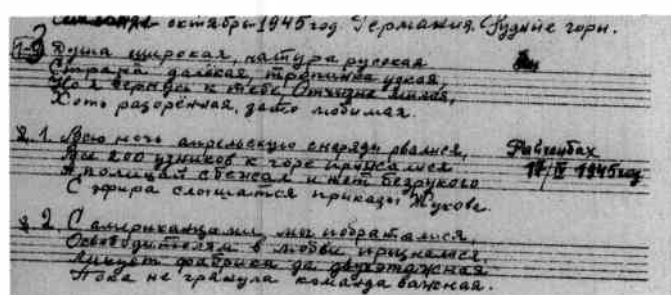 октябрь 1945 год Германия. Рудные горы.
1-3 Душа широкая, натура русская
Страна далёкая, тропинка узкая,
Но я вернусь к тебе Отчизна милая,
Хоть разорённая, зато любимая.
2. 1. Всю ночь апрельскую снаряды рвалися,
Все 200 узников к горе прижалися
А полицай сбежал и нет безрукого
С эфира слышатся приказы Жукова.
17/IV 1945 год
2. 2. С американцами мы побраталися,
Освободителям в любви признались,
Ликует фабрика да двухэтажная
Пока не грянула команда важная.